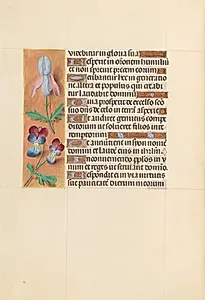 videbitur in gloria sua
Respexit in orationem humiliu
et non sprevit precem eorum
Scribantur hec in generatio
ne altera et populus qui crea
bitur laudabit dominu
Quia prospexit de excelso sancto
suo dns de celo in terra aspexit
Ut audiret gemitus compe
ditorum ut solveret filios inte
remptorum
Ut annutient in syon nome
domini et laude eius in ihrlm
In conveniendo pplos in vnu
m et reges ut serviant domino
Respondit ei in via virtutis
sue paucitate dierum meorum